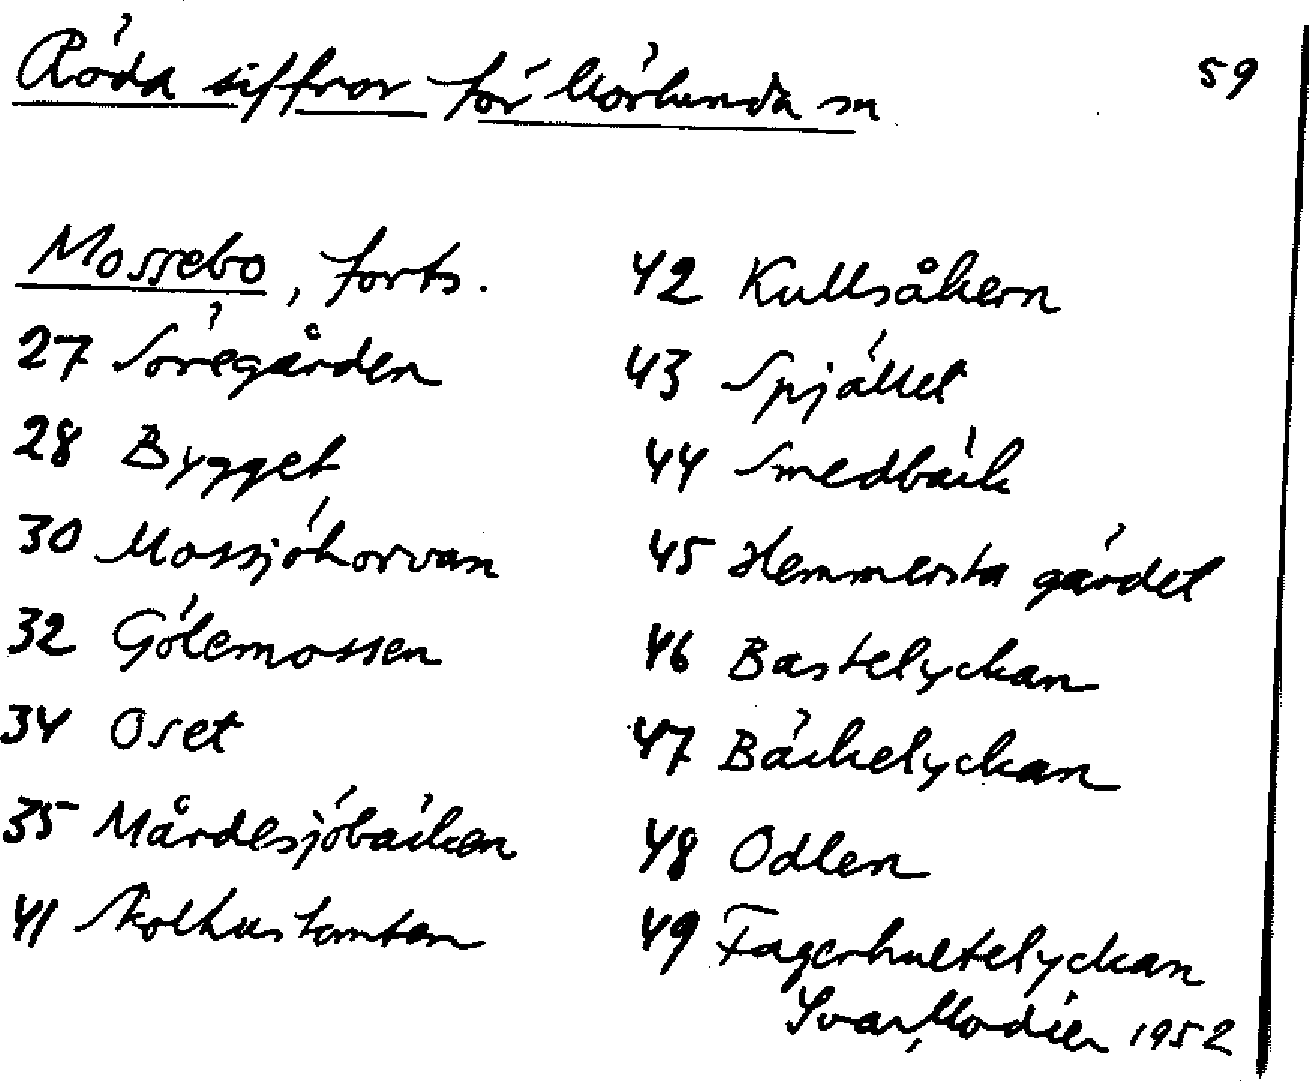 Röda siffror för Mörlunda sn
59
Mossebo, forts.
27 Sörregården
28 Bygget
30 Mossjöhorvan
32 Gölemossen
34 Oset
35 Mårdesjöbäcken
41 Kolhustomten
42 Kullsåkern
43 Spjället
44 Smedbäck
45 Hemmersta gärdet
46 Bastelyckan
47 Bäckelyckan
48 Odlen
49 Fagerhultelyckan
Ivar Modéer 1952